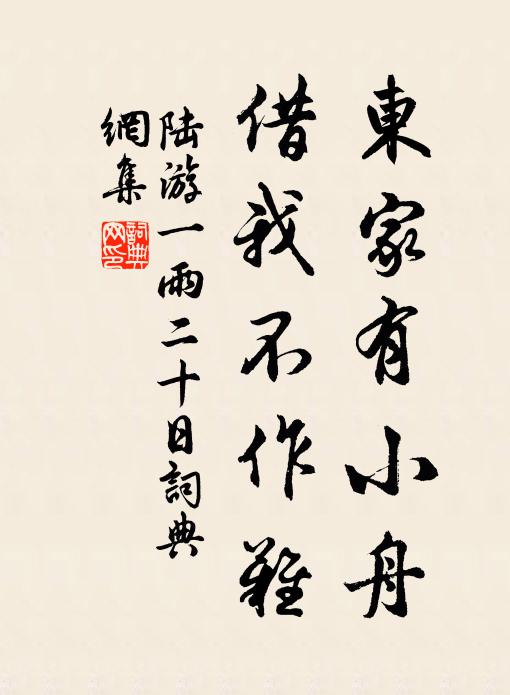 東家有小舟
借我不作難
陆游一雨二十日詞典
網集
詞典网印